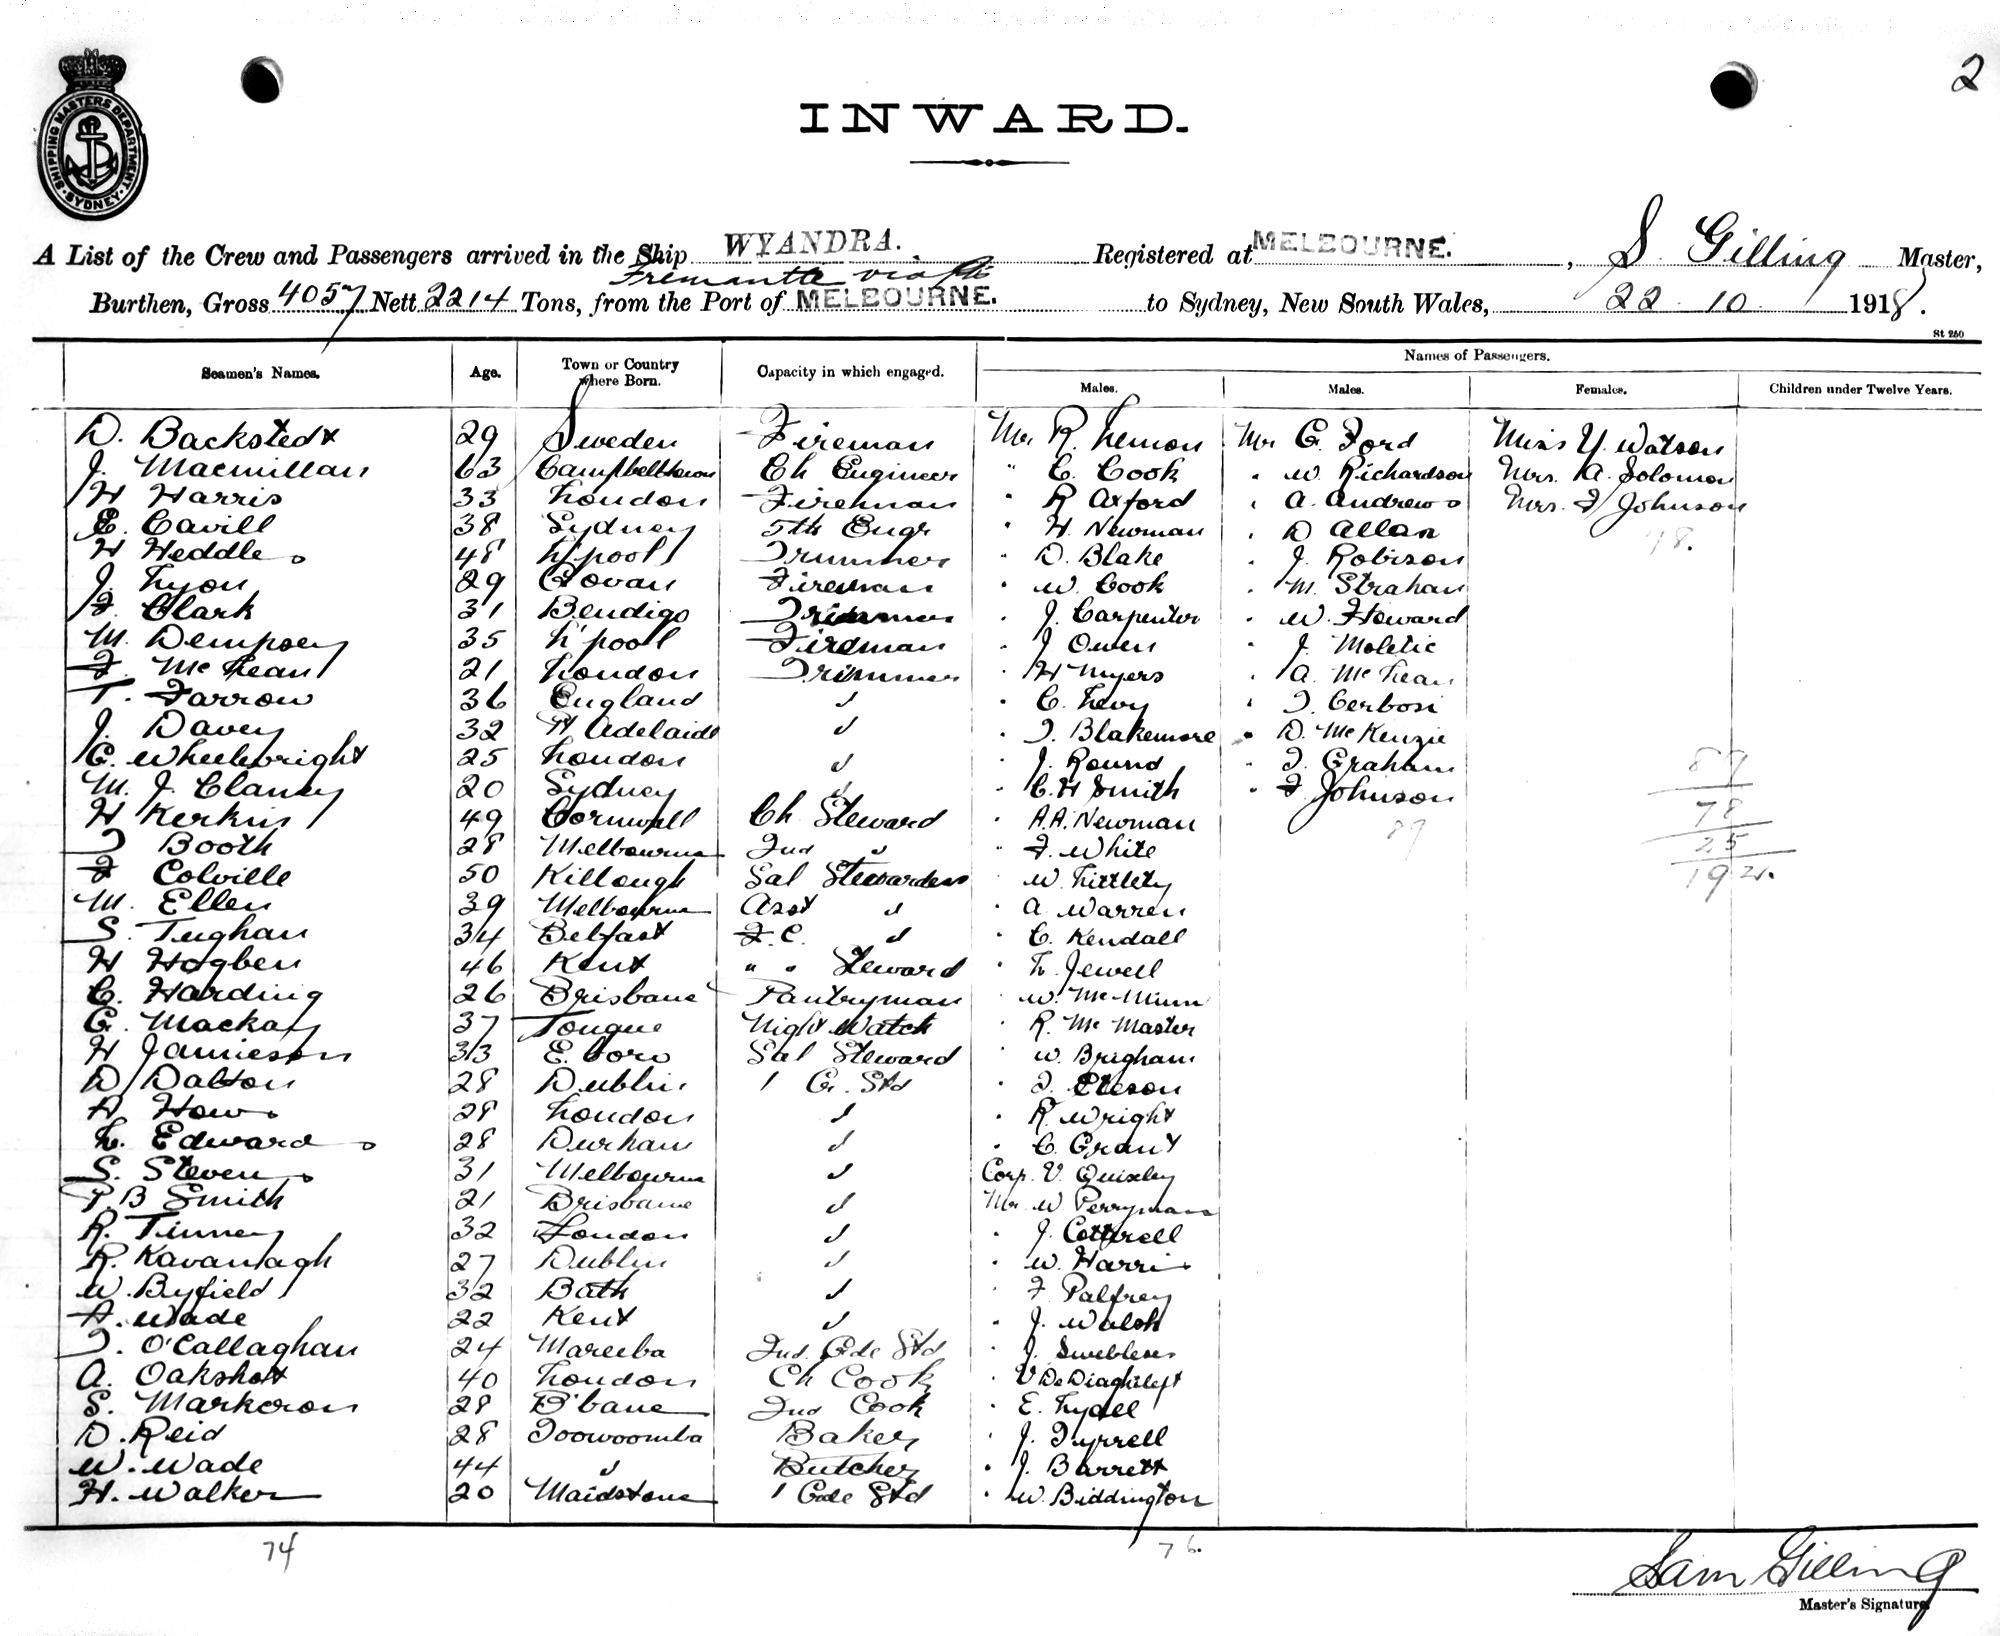 2
SHIPPING MASTERS DEPARTMENT SYDNEY
INWARD.
A List of the Crew and Passengers arrived in the Ship WYANDRA. Registered at MELBOURNE. , S Gilling Master,
Fremantle via
Burthen, Gross 4057 Nett 2214 Tons, from the Port of MELBOURNE. to Sydney, New South Wales, 22 10 1918.
St 250
Seamen's Names. Age. Town or Country where Born. Capacity in which engaged. Names of Passengers.
Males. Males. Females. Children under Twelve Years.
D. Backstedt 29 Sweden Fireman Mr R. Lemon Mr G. Ford Miss Y. Watson
J. Macmillan 63 Campbeltown Ch Engineer " C. Cook " W Richardson Mrs. A. Solomon
H Harris 33 London Fireman " R Axford " A. Andrews Mrs. F Johnson
E. Cavill 38 Sydney 5th Engr " H. Newman " D Allan
H Heddles 48 L'pool Trimmer " D. Blake " J. Robison 78.
J. Lyon 29 Govan Fireman " W. Cook " M. Strahan
F. Clark 31 Bendigo Trimmer " J. Carpenter " W. Howard
M. Dempsey 35 L'pool Fireman " J Owen " J. Moletic
F. McLean 21 London Trimmer " H Myers " A. McLean
T. Farrow 36 England " " C. Levy " T. Cerbosi
J. Davey 32 Pt Adelaide " " T. Blakemore " D. McKenzie
C. Wheelwright 25 London " " J. Round " T. Graham 89
M. J. Clancy 20 Sydney " " C. H Smith " F Johnson
H Kerkin 49 Cornwall Ch Steward " A. A. Newman 89 78
T Booth 28 Melbourne 2nd " " F. White 25
F Colville 50 Killough Sal Stewardess " W. Littlety 192
M. Ellen 39 Melbourne Asst " " A Warren
S. Tughan 34 Belfast F. C. " " C. Kendall
H Hogben 46 Kent " " Steward " L. Jewell
C. Harding 26 Brisbane Pantryman " W. McMinn
G. Mackay 37 Tongue Night Watch " R. McMaster
H Jamieson 33 E. boro Sal Steward " W. Brigham
D Dalton 28 Dublin 1 Cr. Std " T. Eteson
A How 28 London " " R Wright
L. Edwards 28 Durham " " C. Grant
S. Stevens 31 Melbourne " Corp. V. Quixley
P. B Smith 21 Brisbane " Mr W Perryman
R. Tinney 32 London " " J. Cottrell
R. Kavanagh 27 Dublin " " W. Harris
W. Byfield 32 Bath " " F Palfrey
A. Wade 22 Kent " " J. Walsh
T. O'Callaghan 24 Mareeba 2nd Cde Std " J.
A. Oakshott 40 London Ch Cook " V De Diaghileft
S. Markeron 28 B'bane 2nd Cook " E. Lydell
D. Reid 28 Toowoomba Baker " J. Tyrrell
W. Wade 44 " Butcher " J. Barrett
H. Walker 20 Maidstone 1 Cde Std " W. Biddington
74 76.
Sam Gilling
Master's Signature